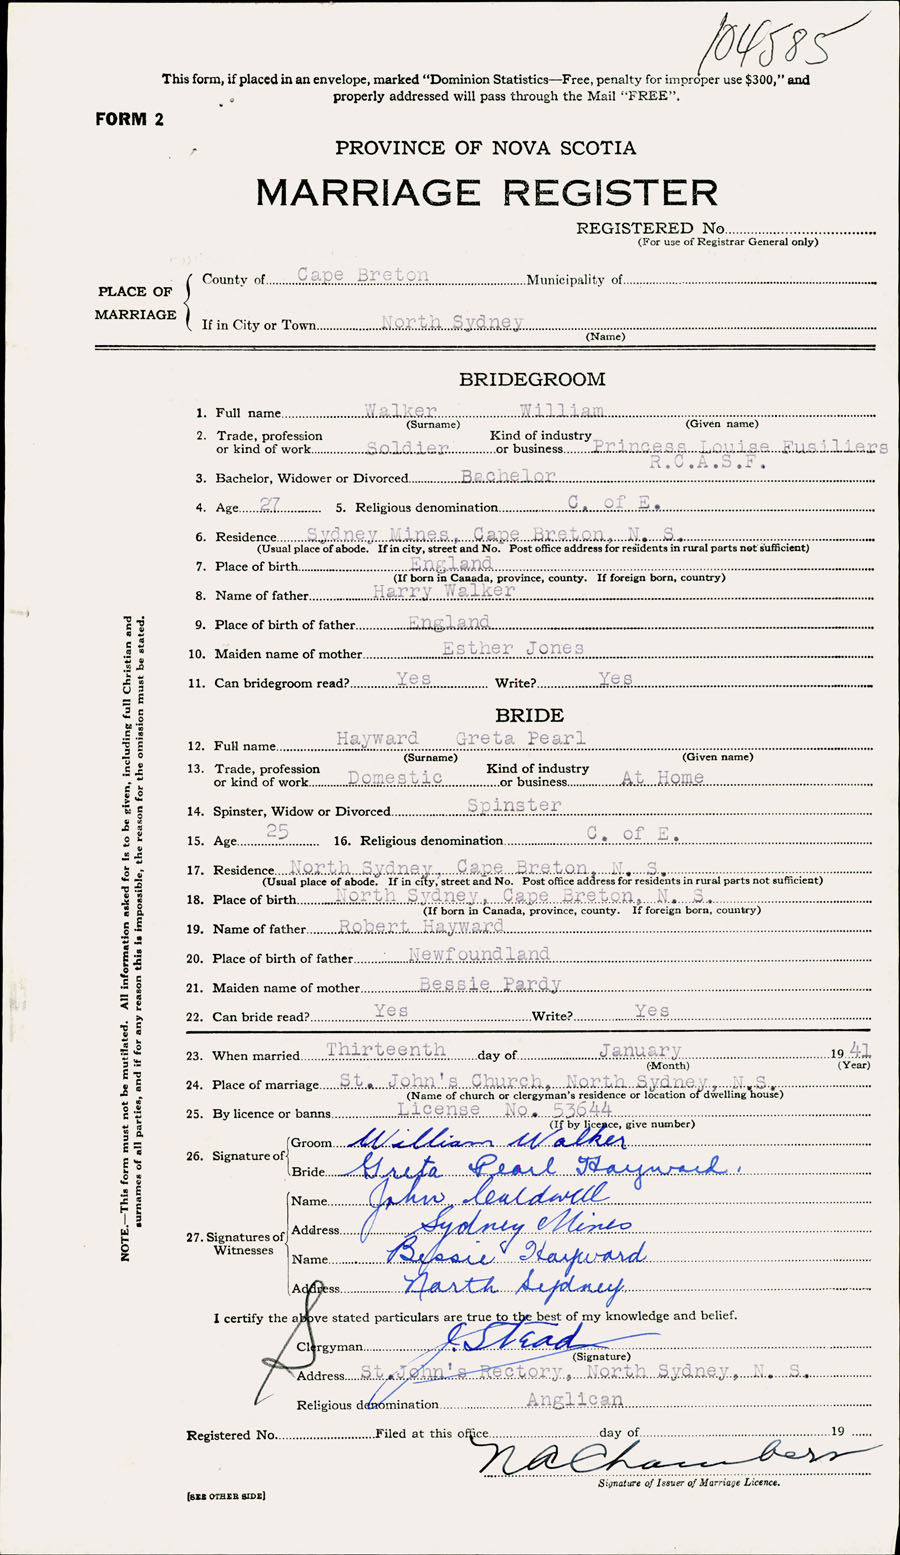 104585
This form, if placed in an envelope, marked “Dominion Statistics—Free, penalty for improper use $300,” and
properly addressed will pass through the Mail “FREE”.
FORM 2
PROVINCE OF NOVA SCOTIA
MARRIAGE REGISTER
REGISTERED No.
(For use of Registrar General only)
PLACE OF MARRIAGE
County of Cape Breton Municipality of
If in City or Town North Sydney
(Name)
BRIDEGROOM
1. Full name Walker William
(Surname) (Given name)
2. Trade, profession or kind of work Soldier Kind of industry or business Princess Louise Fusiliers
R.C.A.S.F.
3. Bachelor, Widower or Divorced Bachelor
4. Age 27 5. Religious denomination C. of E.
6. Residence Sydney Mines, Cape Breton, N. S.
(Usual place of abode. If in city, street and No. Post office address for residents in rural parts not sufficient)
7. Place of birth England
(If born in Canada, province, county. If foreign born, country)
8. Name of father Harry Walker
9. Place of birth of father England
10. Maiden name of mother Esther Jones
11. Can bridegroom read? Yes Write? Yes
BRIDE
12. Full name Hayward Greta Pearl
(Surname) (Given name)
13. Trade, profession or kind of work Domestic Kind of industry or business At Home
14. Spinster, Widow or Divorced Spinster
15. Age 25 16. Religious denomination C. of E.
17. Residence North Sydney, Cape Breton, N. S.
(Usual place of abode. If in city, street and No. Post office address for residents in rural parts not sufficient)
18. Place of birth North Sydney, Cape Breton, N. S.
(If born in Canada, province, county. If foreign born, country)
19. Name of father Robert Hayward
20. Place of birth of father Newfoundland
21. Maiden name of mother Bessie Pardy
22. Can bride read? Yes Write? Yes
23. When married Thirteenth day of January 19 41
(Month) (Year)
24. Place of marriage St. John's Church, North Sydney, N.S.
(Name of church or clergyman's residence or location of dwelling house)
25. By licence or banns License No. 53644
(If by licence, give number)
26. Signature of
Groom William Walker
Bride Greta Pearl Hayward.
27. Signatures of Witnesses
Name John Caldwell
Address Sydney Mines
Name Bessie Hayward
Address North Sydney
I certify the above stated particulars are true to the best of my knowledge and belief.
Clergyman J. Stead
(Signature)
Address St.John's Rectory, North Sydney, N. S.
Religious denomination Anglican
Registered No. Filed at this office day of 19
N A Chambers
Signature of Issuer of Marriage Licence.
[SEE OTHER SIDE]
NOTE.—This form must not be mutilated. All information asked for is to be given, including full Christian and
surnames of all parties, and if for any reason this is impossible, the reason for the omission must be stated.